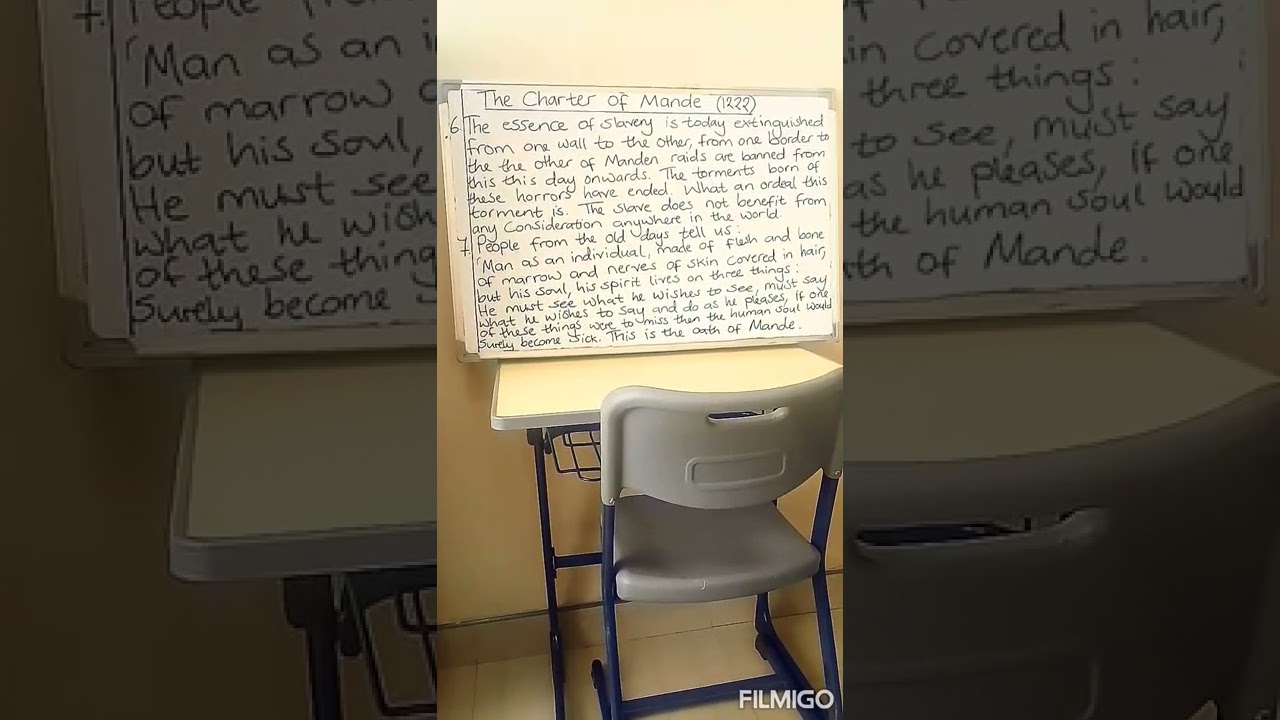 The Charter of Mande (1222)
6. The essence of slavery is today extinguished
from one wall to the other, from one border to
the the other of Manden raids are banned from
this this day onwards. The torments born of
these horrors have ended. What an ordeal this
torment is. The slave does not benefit from
any consideration anywhere in the world.
7. People from the old days tell us:
'Man as an individual, made of flesh and bone
of marrow and nerves of skin covered in hair,
but his soul, his spirit lives on three things:
He must see what he wishes to see, must say
what he wishes to say and do as he pleases, if one
of these things were to miss then the human soul would
surely become sick. This is the oath of Mande.
FILMIGO